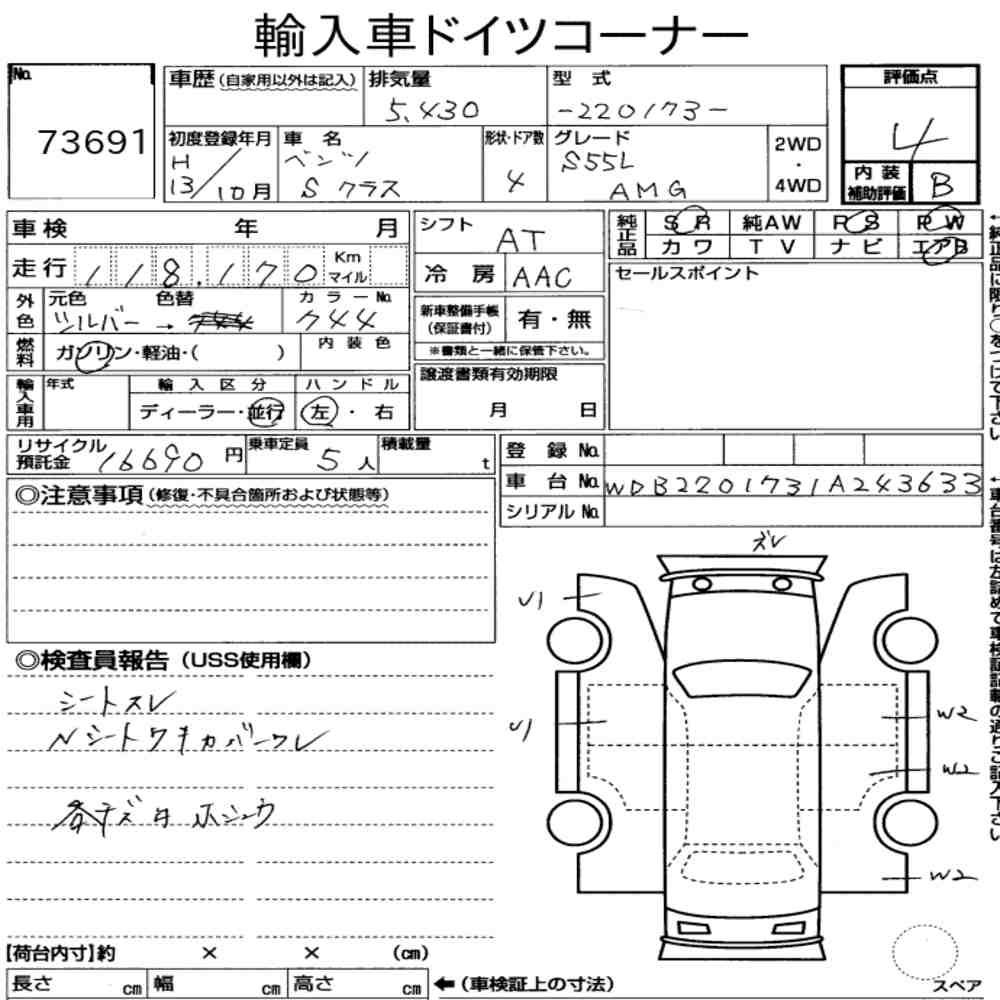 輸入車ドイツコーナー
No. 73691
車歴(自家用以外は記入)
排気量 5,430
型式 -220173-
初度登録年月 H13/10月
車名 ベンツ Sクラス
形状・ドア数 4
グレード S55L AMG
2WD・4WD
評価点 4
内装補助評価 B
車検 年 月
走行 118,170 Km マイル
外色 元色 シルバー → 色替
カラーNo. 744
燃料 ガソリン・軽油・( )
内装色
輸入車用 年式
輸入区分 ディーラー・並行
ハンドル 左・右
シフト AT
冷房 AAC
新車整備手帳(保証書付) 有・無
※書類と一緒に保管下さい。
譲渡書類有効期限
月 日
純正品 SR 純AW PS PW
カワ TV ナビ エアB
セールスポイント
←純正品に限り○をつけて下さい
リサイクル預託金 16690円
乗車定員 5人
積載量 t
登録No.
車台No. WDB2201731A243633
シリアルNo.
←車台番号は左詰めで車検証記載の通りご記入下さい
◎注意事項(修復・不具合箇所および状態等)
◎検査員報告(USS使用欄)
シートスレ
Nシートワキカバーワレ
キズ ホシュウ
ズレ
U1
U1
W2
W2
W2
【荷台内寸】約 × × (cm)
長さ cm 幅 cm 高さ cm ←(車検証上の寸法)
スペア